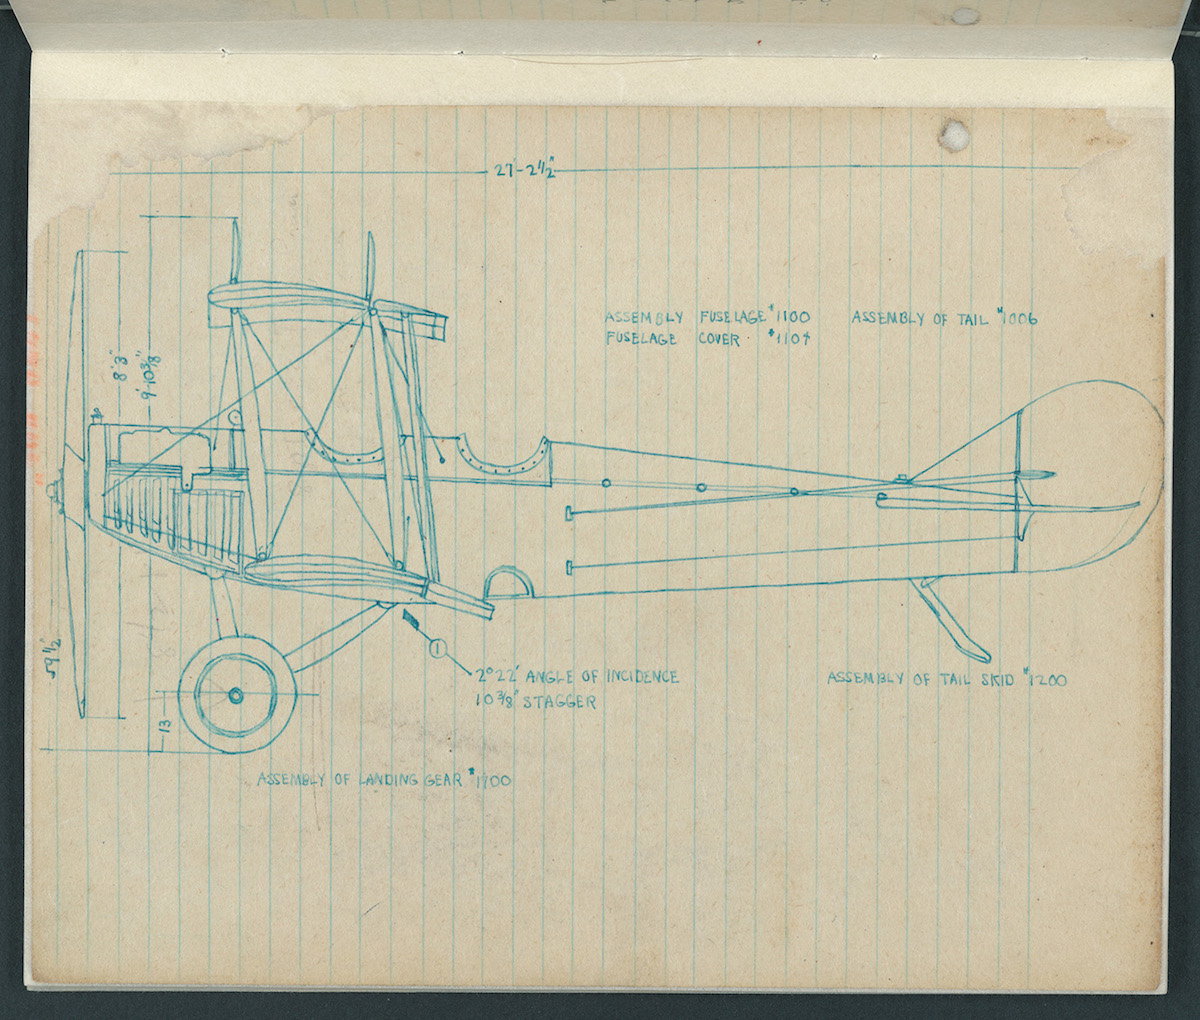 27'-2 1/2"
8'3"
9'-10 3/8"
ASSEMBLY FUSELAGE #1100
FUSELAGE COVER #1104
ASSEMBLY OF TAIL #1006
59 1/2"
13
1
2°22' ANGLE OF INCIDENCE
10 3/8" STAGGER
ASSEMBLY OF TAIL SKID #1200
ASSEMBLY OF LANDING GEAR #1700